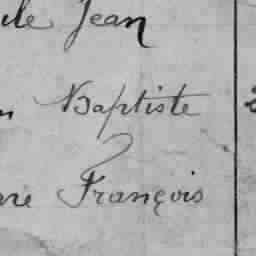 ile Jean
n Baptiste 2
re François